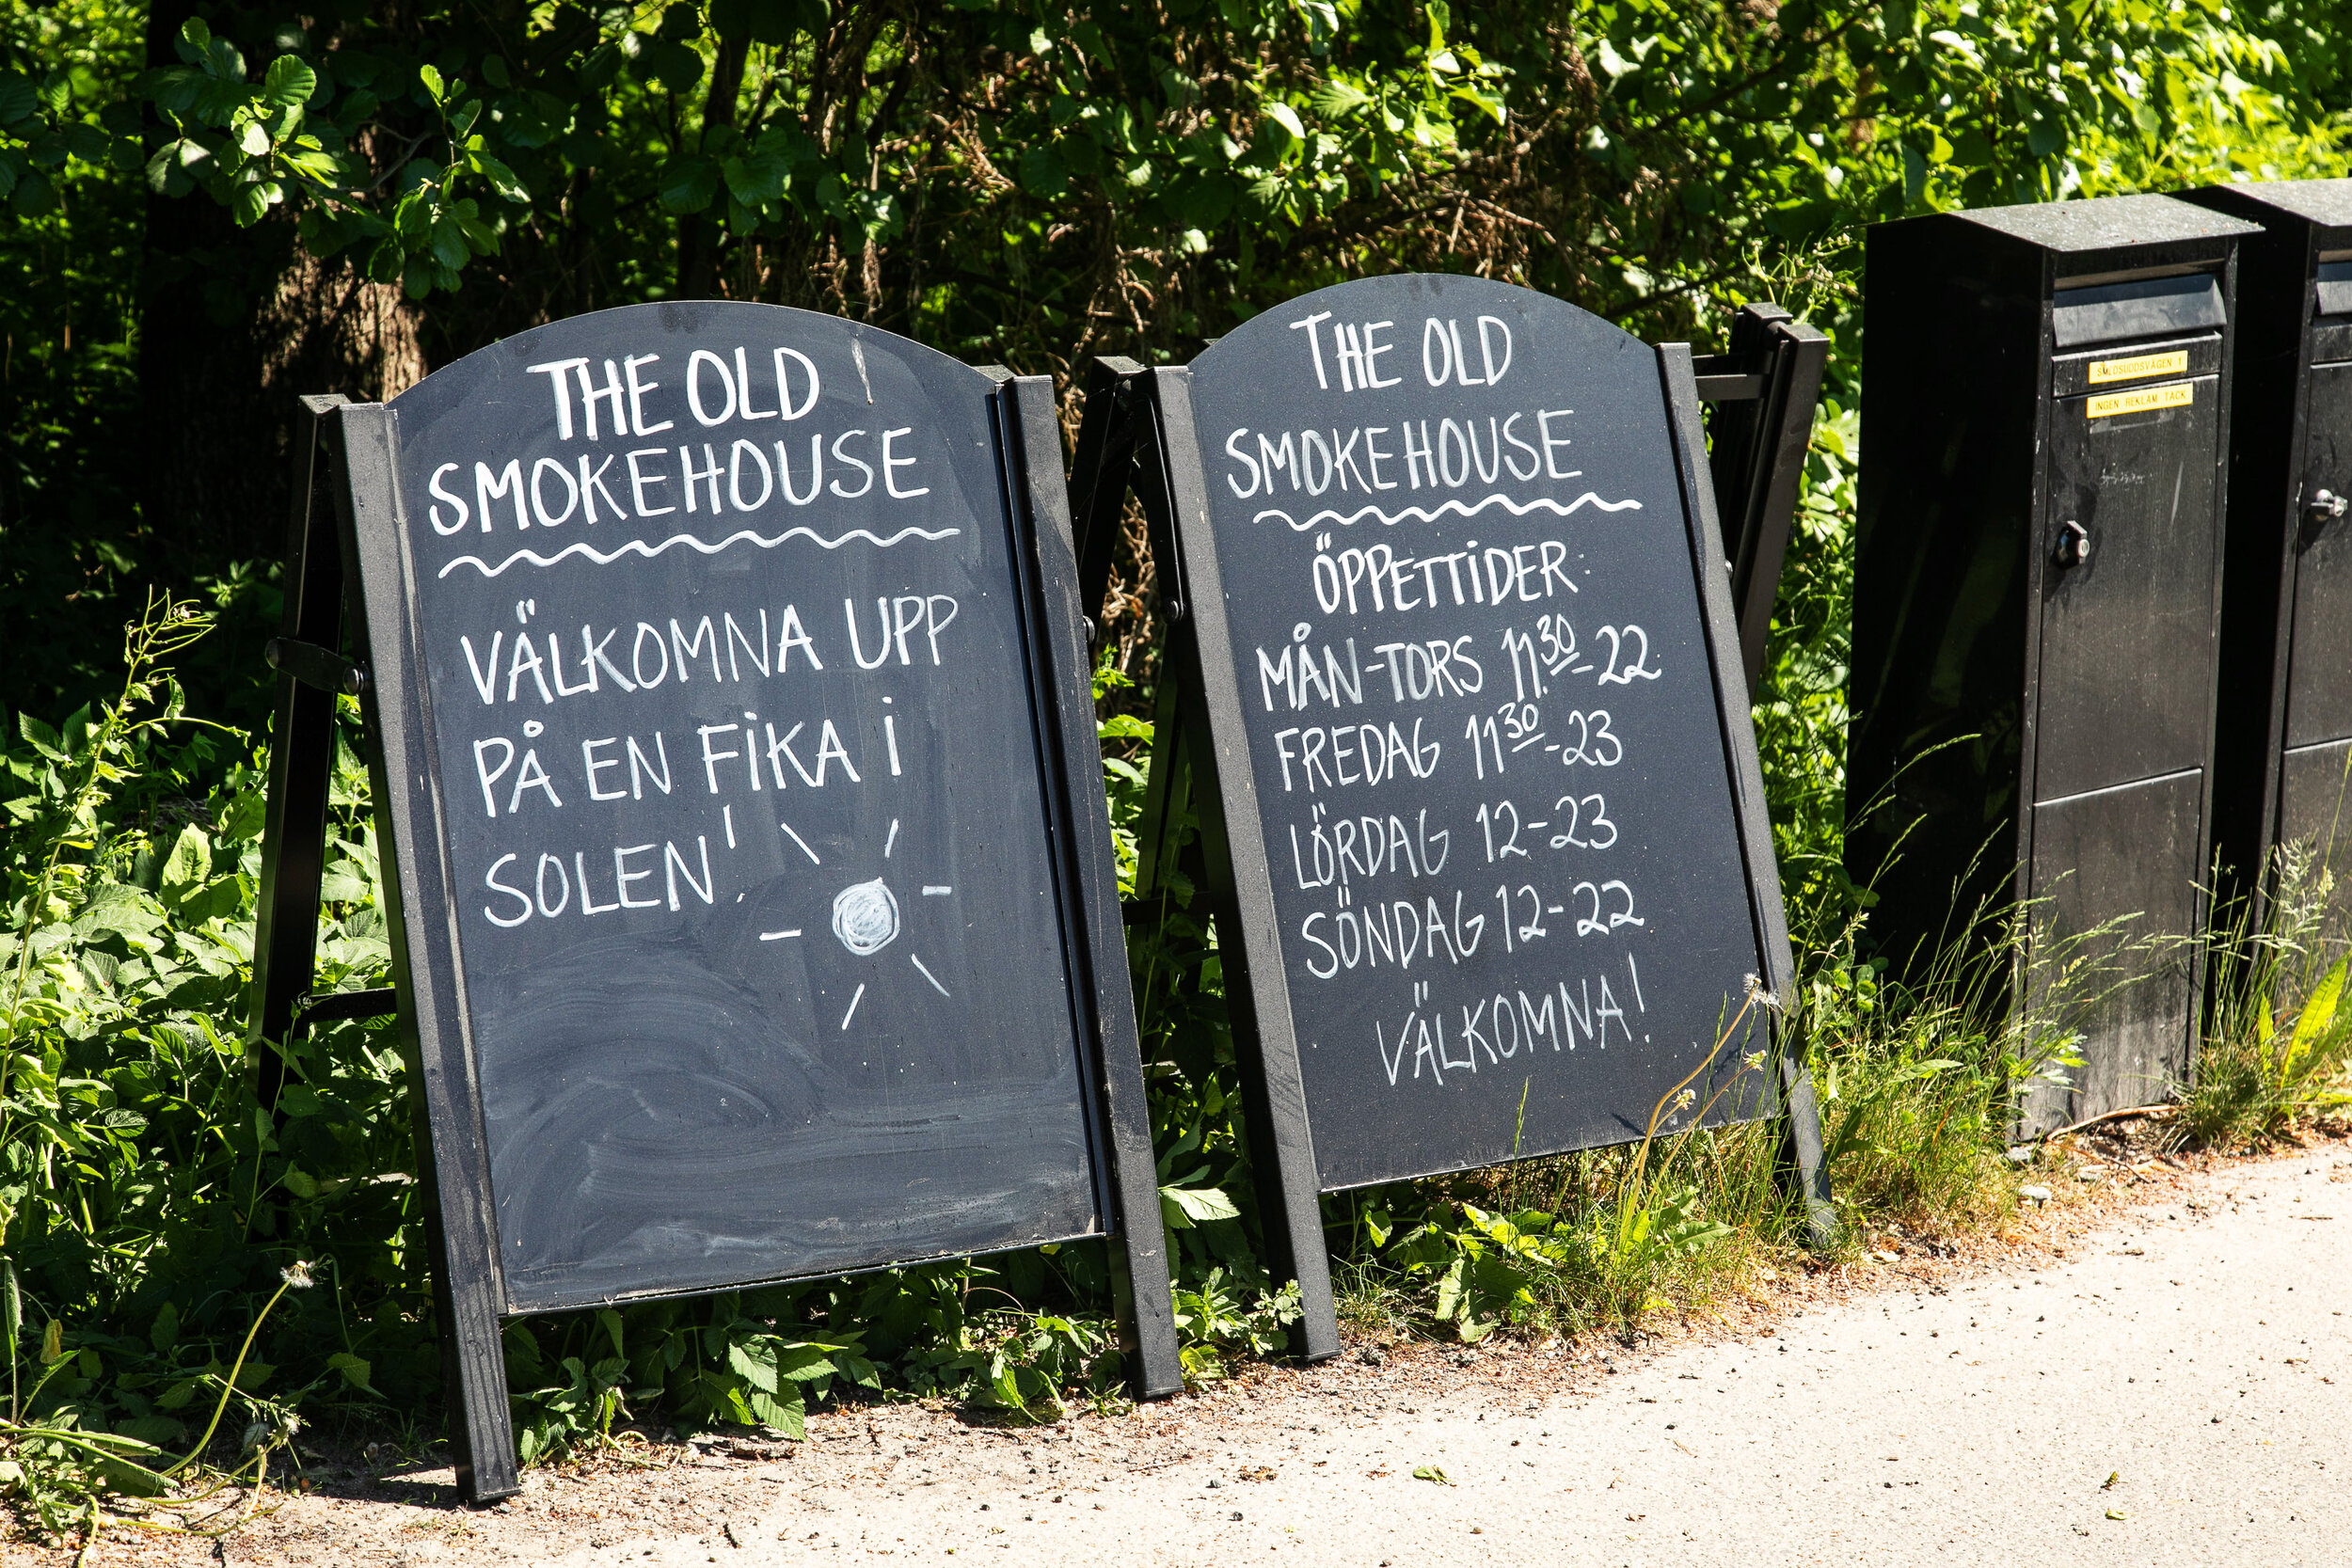 THE OLD
SMOKEHOUSE
VÄLKOMNA UPP
PÅ EN FIKA i
SOLEN!
THE OLD
SMOKEHOUSE
ÖPPETTiDER:
MÅN-TORS 11.30-22
FREDAG 11.30-23
LÖRDAG 12-23
SÖNDAG 12-22
VÄLKOMNA!
SMEDSUDDSVÄGEN 1
INGEN REKLAM TACK